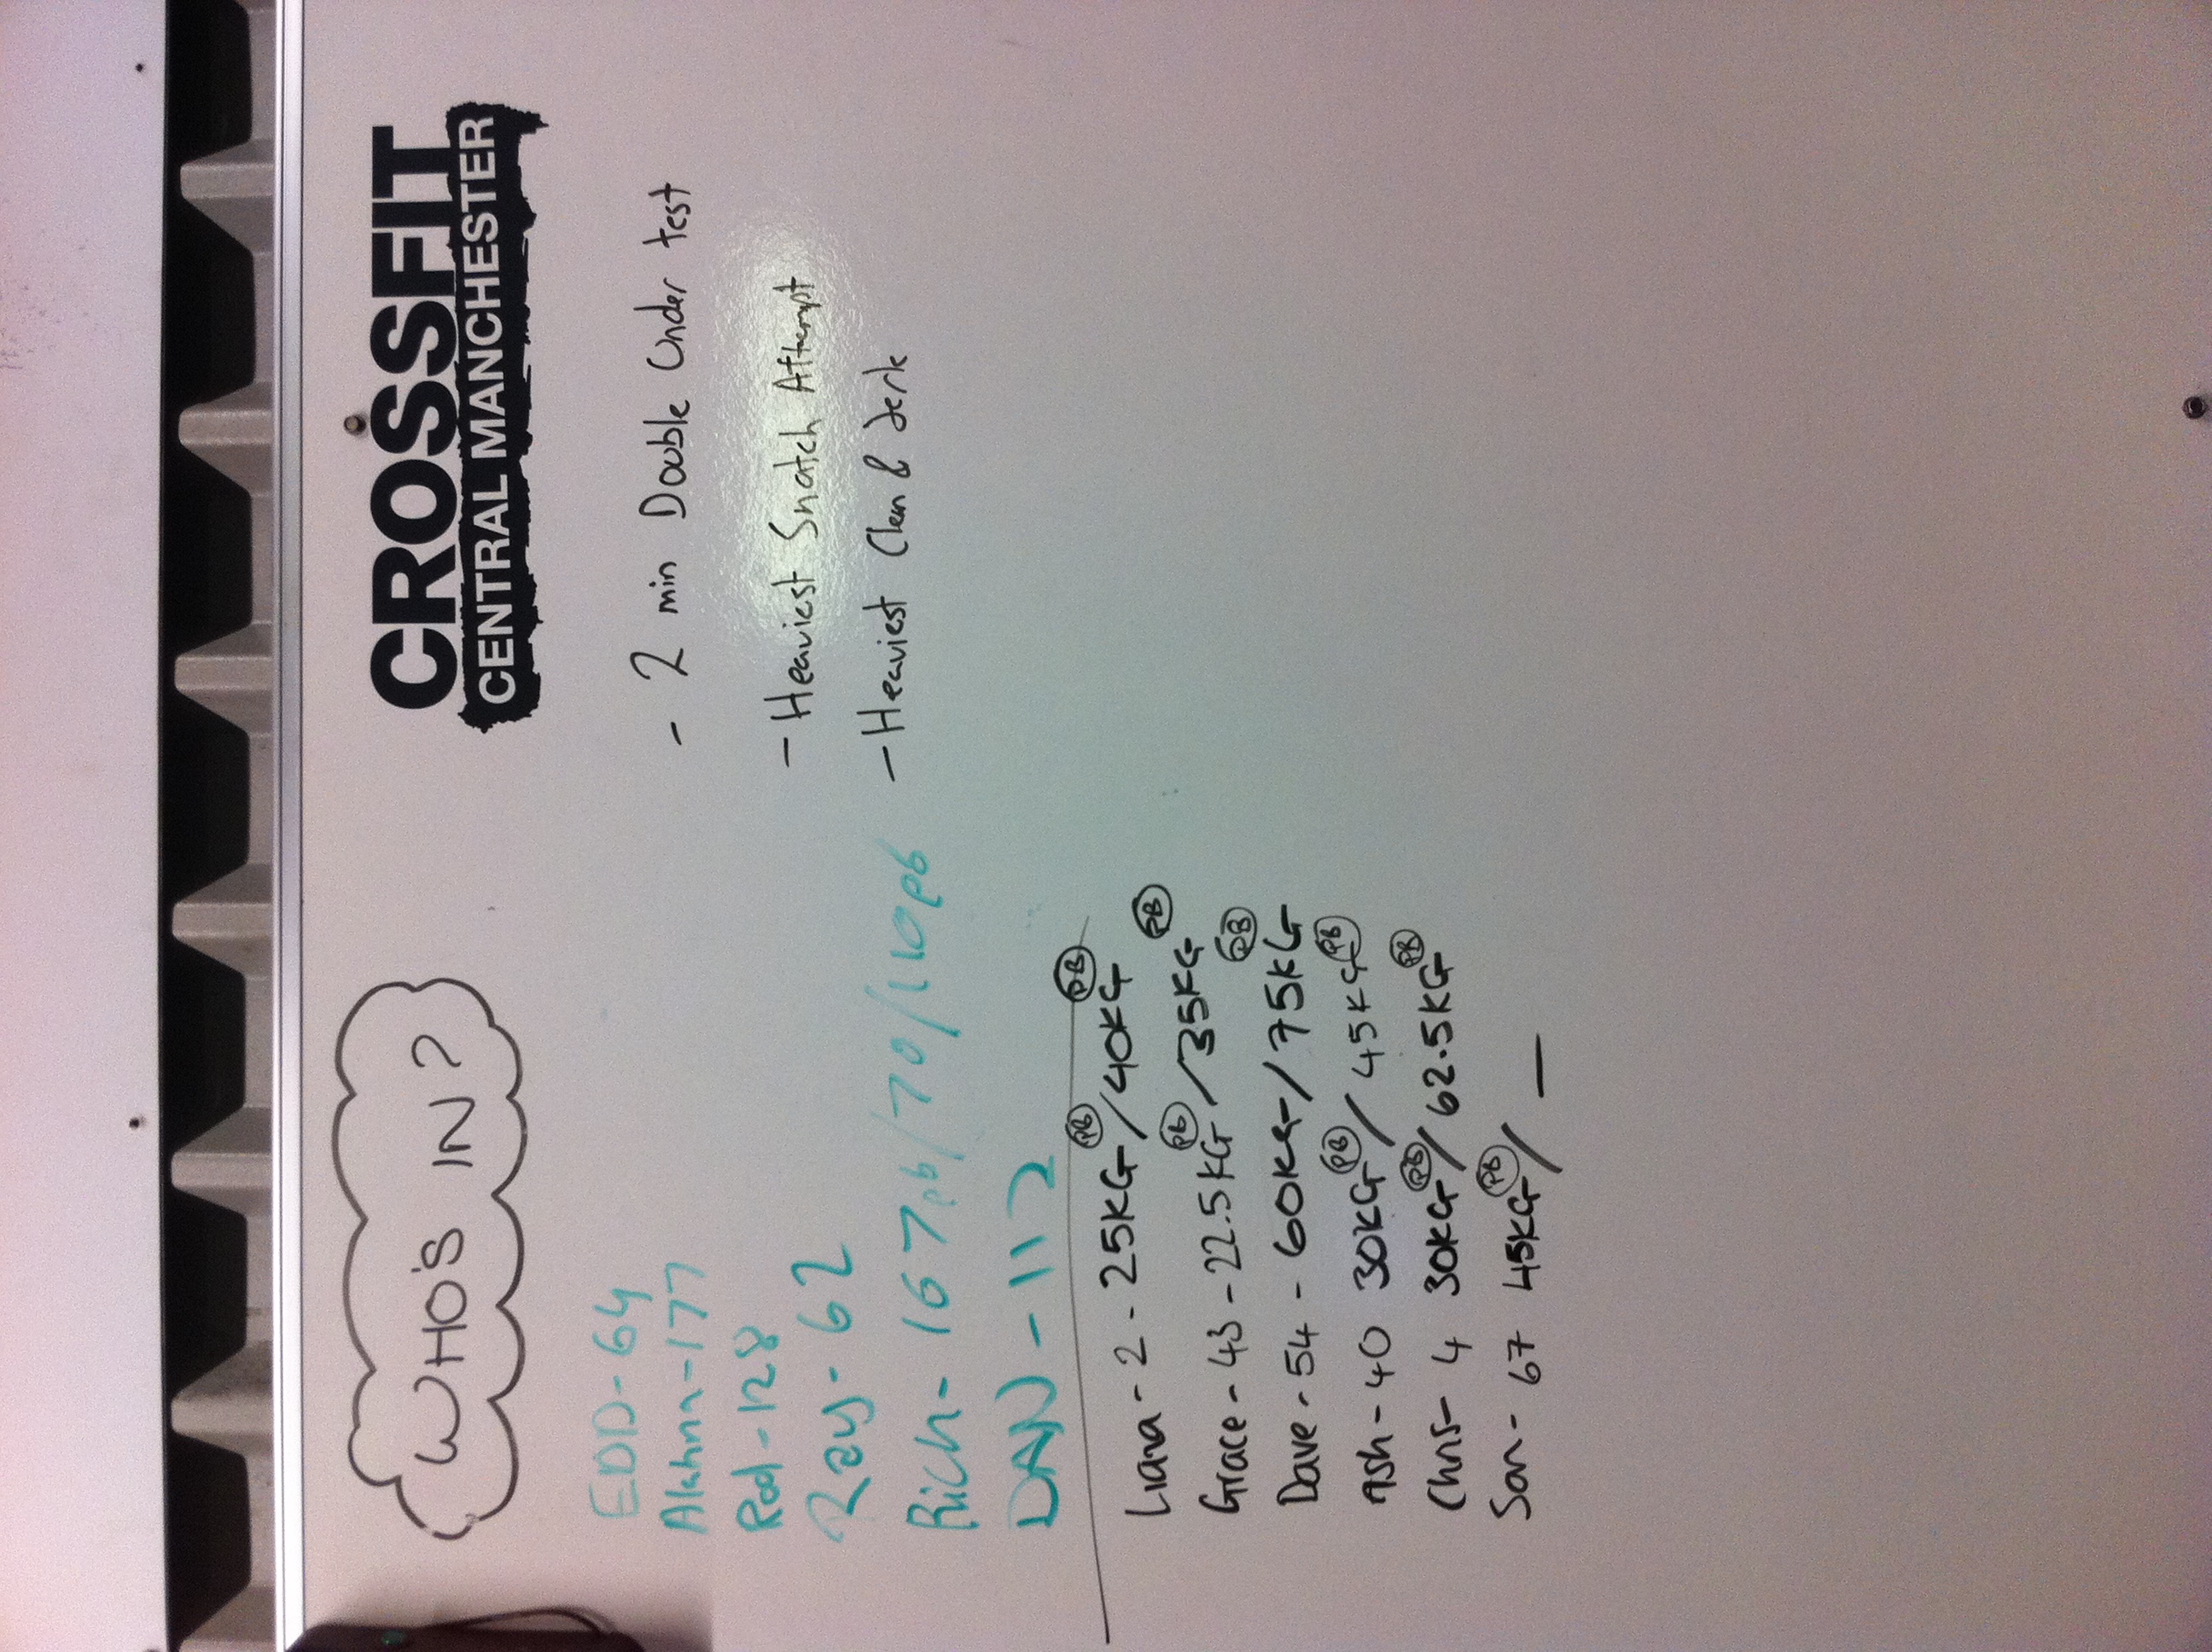 WHO'S IN?
CROSSFIT
CENTRAL MANCHESTER
- 2 min Double Under test
- Heaviest Snatch Attempt
- Heaviest Clean & Jerk
EDD - 64
Alahna - 177
Rod - 128
Ray - 62
Rich - 167pb/70/110pb
DAN - 117
Liana - 2 - 25KG PB/40KG PB
Grace - 43 - 22.5KG PB/35KG PB
Dave - 54 - 60KG/75KG PB
Ash - 40 30KG PB/45KG PB
Chris - 4 30KG PB/62.5KG PB
67 45KG PB/ —